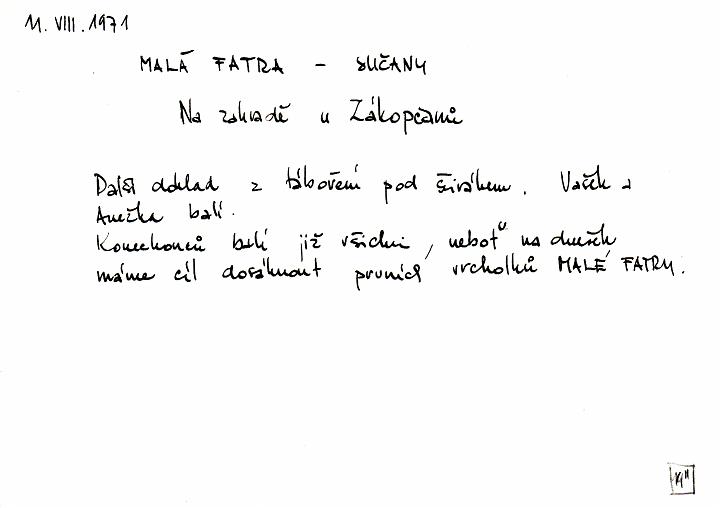 11. VIII. 1971
MALÁ FATRA - SUČANY
Na zahradě u Zákopčanů
Další doklad z táboření pod širákem. Vašek a
Anežka balí.
Konec konců balí již všichni, neboť na dnešek
máme cíl dosáhnout prvních vrcholků MALÉ FATRY.